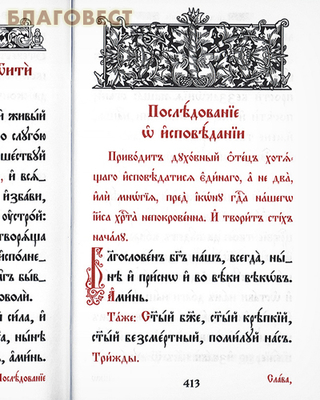 БЛАГОВЕСТ
ѡ҆итѝ
й живы́й
о слꙋго́ю
ше́ствꙋй
, и҆ всѧ̀
и҆зба́ви,
и ᲂу҆стро́й:
творѧ́ща
и҆спо́лне
гъ бы́в
оволи.
й си́ла, и҆
а, ны́нѣ
, а҆ми́нь.
Послѣ́дованїе
Послѣ́дованїе
ѡ҆ и҆сповѣ́данїи
Приво́дитъ дꙋхо́вный ѻ҆те́цъ хотѧ́
щаго и҆сповѣ́датисѧ є҆ди́наго, а҆ не два̀,
и҆лѝ мнѡ́гїѧ, пред̾ і҆кѡ́нꙋ гдⷭ҇а на́шегѡ
і҆и҃са хрⷭ҇та̀ непокрове́нна. И҆ твори́тъ сті́хъ
нача́лꙋ.
Бл҃гослове́нъ бг҃ъ на́шъ, всегда̀, ны́
нѣ и҆ при́снѡ и҆ во вѣ́ки вѣкѡ́въ.
А҆ми́нь.
Та́же: Ст҃ы́й бж҃е, ст҃ы́й крѣ́пкїй,
ст҃ы́й безсме́ртный, поми́лꙋй на́съ.
Три́жды.
413
Сла́ва,